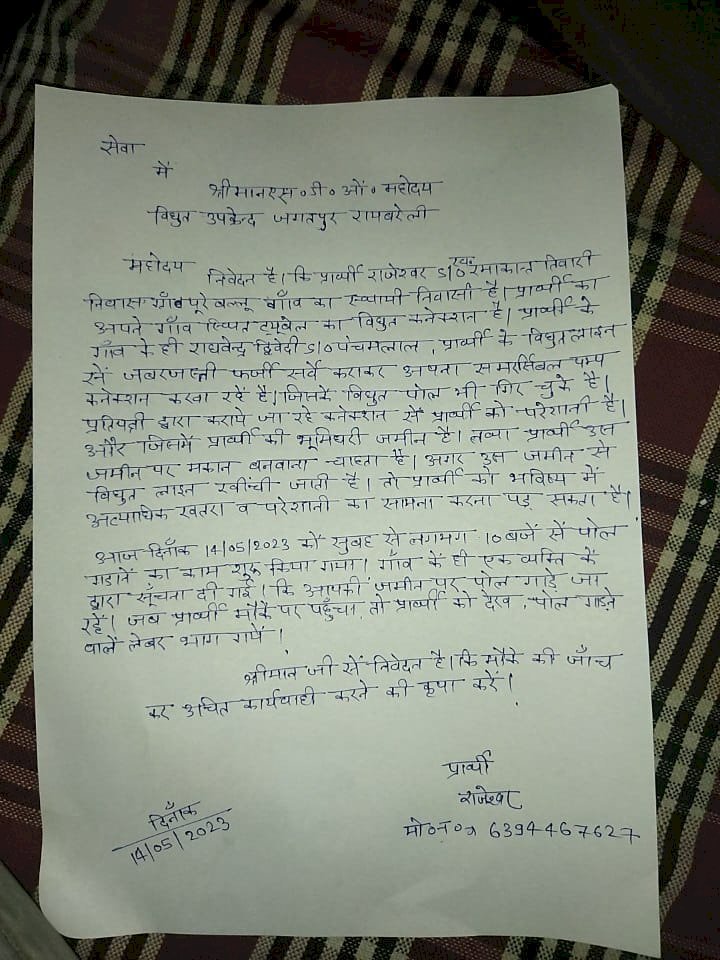 सेवा
में
श्रीमान एस॰ डी॰ ओ॰ महोदय
विद्युत उपकेन्द्र जगतपुर रायबरेली
महोदय
निवेदन है। कि प्रार्थी राजेश्वर S/O स्व॰ रमाकान्त तिवारी
निवास गाँव पूरे वल्लू गाँव का स्थायी निवासी है। प्रार्थी का
अपने गाँव स्थित ट्यूबेल का विद्युत कनेक्शन है। प्रार्थी के
गाँव के ही राघवेन्द्र द्विवेदी S/O पंचमलाल, प्रार्थी के विद्युत लाइन
सें जबरजस्ती फर्जी सर्वे कराकर अपना समरर्सिबल पम्प
कनेक्शन करवा रहें है। जिसकें विद्युत पोल भी गिर चुके है।
प्रतिपक्षी द्वारा कराये जा रहे कनेक्शन सें प्रार्थी को परेशानी है।
और जिसमें प्रार्थी की भूमिधरी जमीन है। तथा प्रार्थी उस
जमीन पर मकान बनवाना चाहता है। अगर उस जमीन से
विद्युत लाइन खींची जाती है। तो प्रार्थी को भविष्य में
अत्याधिक खतरा व परेशानी का सामना करना पड़ सकता है।
आज दिनाँक 14/05/2023 कों सुबह से लगभग 10 बजें सें पोल
गडानें का काम शुरू किया गया। गाँव कें ही एक व्यक्ति कें
द्वारा सूँचना दी गई। कि आपकी जमीन पर पोल गाड़े जा
रहें। जब प्रार्थी मौकें पर पहुँचा, तो प्रार्थी को देख, पोल गाड़ने
वालें लेबर भाग गयें।
श्रीमान जी सें निवेदन है। कि मौके की जाँच
कर उचित कार्यवाही करने की कृपा करें।
प्रार्थी
राजेश्वर
मो॰ न॰ 6394467627
दिनाँक
14/05/2023